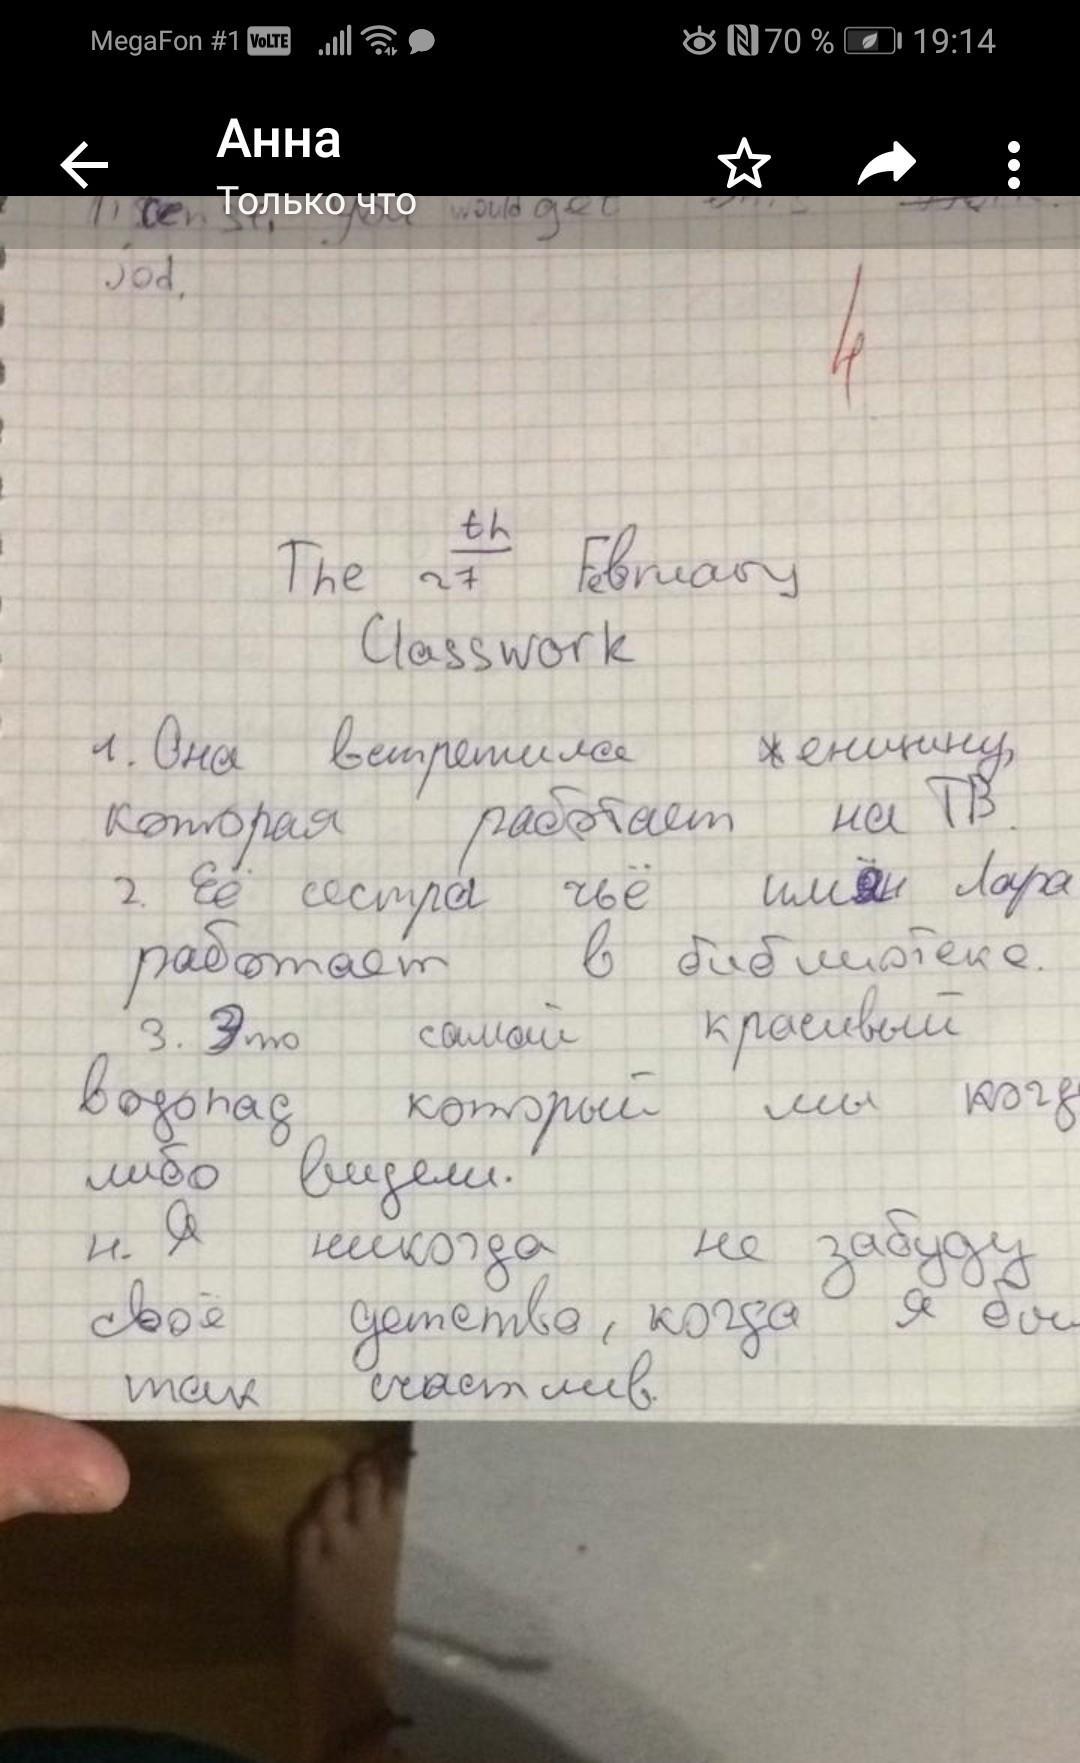 MegaFon #1 VoLTE 70 % 19:14
Анна
Только что
you would get
jod.
4
The 27 th February
Classwork
1. Она встретила женщину,
которая работает на ТВ.
2. Её сестра чьё имя Лара
работает в библиотеке.
3. Это самый красивый
водопад который мы когда
либо видели.
4. Я никогда не забуду
своё детство, когда я
так счастлив.